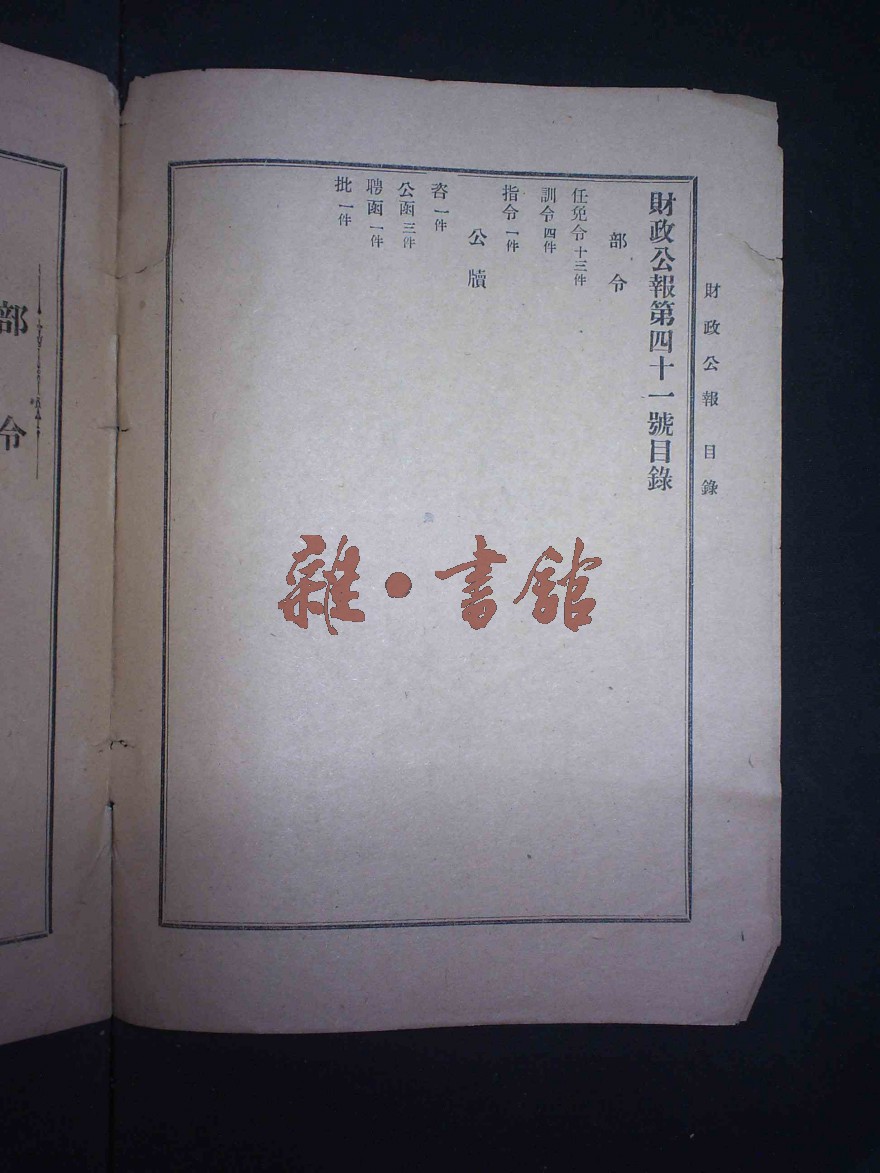 財政公報 目錄
財政公報第四十一號目錄
部令
任免令 十三件
訓令 四件
指令 一件
公牘
咨 一件
公函 三件
聘函 一件
批 一件
雜·書館
部令